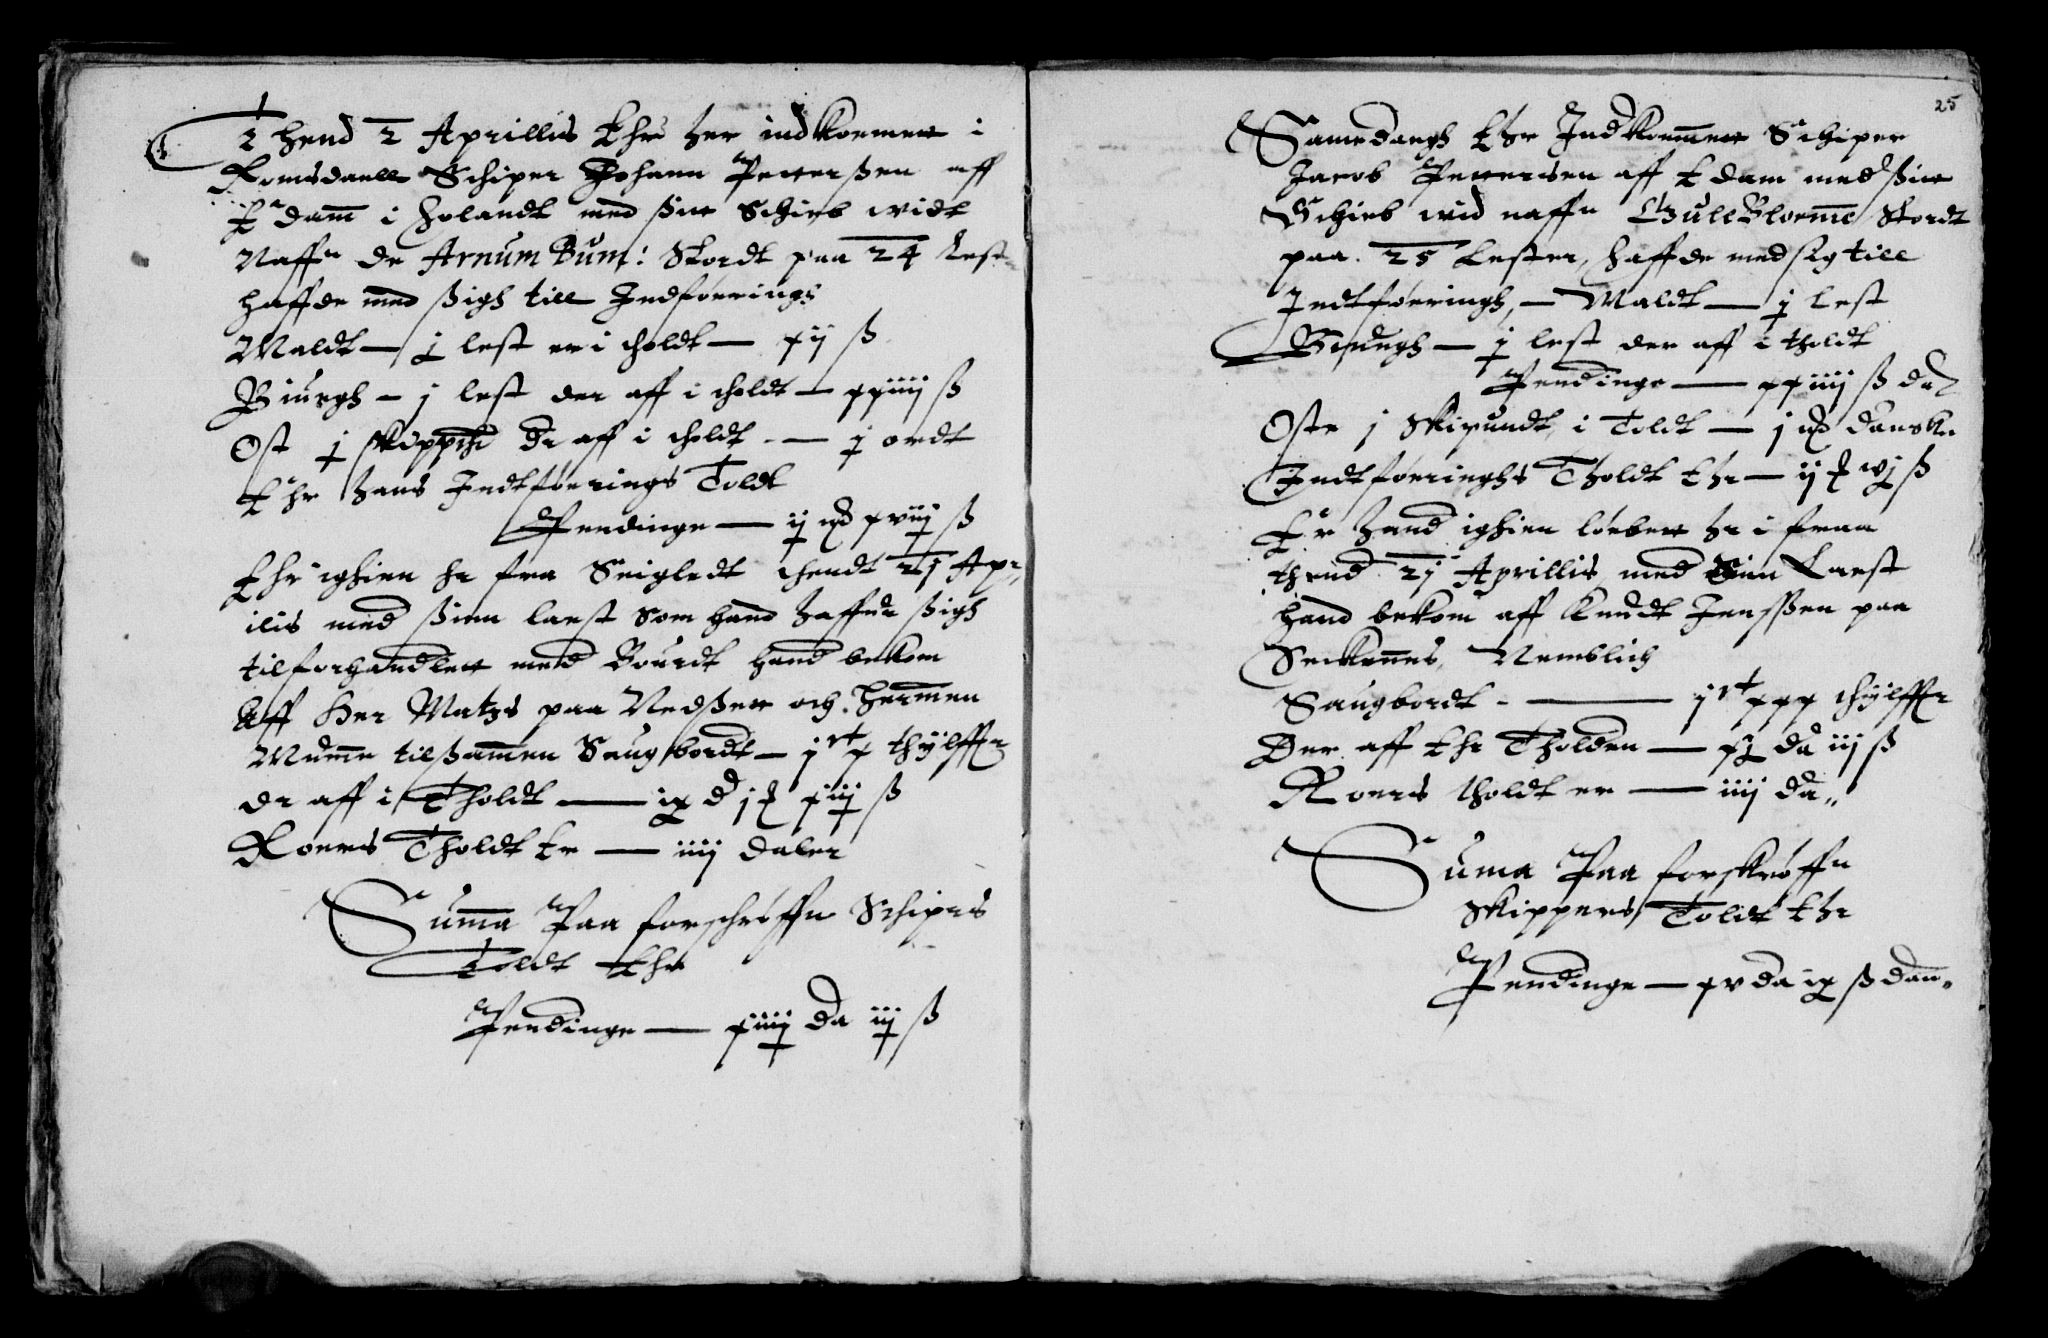 Thend 2 Aprillis Ehr her indkommen i
Romsdaell Schiper Johann Petterßen aff
Edam i Holandt med sin Schieb widt
Naffn de Arnum Bum: Stordt paa 24 Lest
haffde med ßigh till Indførings
Maldt — j lest er i tholdt — xij ß
Biurgh — j lest der aff i tholdt — xxiiij ß
Ost j skippth der aff i tholdt — j ordt
Ehr hans Indtførings Toldt
Pendinge — ij xviij ß
Ehr ighien her fra Seigledt thendt 21 Apr
ilis med ßinn last som hand haffde ßigh
tilforhandlett med Bourdt hand bekom
Aff Her Matzs paa Nedßett och Hermen
Mumme tilßammen Saugbordt — jct x thÿlffter
der aff i Tholdt — ix d j xiiij ß
Roers Tholdt Er — iiij daler
Summa Paa forschrøffne Schipers
Toldt Ehr
Pendinge — xiiij da iij ß
25
Samedaugh Ehr Indkommen Schiper
Jacob Pettersen aff Edam med ßin
Schieb wid naffn Gule Bloemme Stordt
paa 25 Lester, haffde med sig till
Indtføringh, — Maldt — j lest
Biugh — j lest der aff i tholdt
Pendinge — xxiiij ß da
Oste j Skipundt i Toldt — j danske
Indtføringhs Tholdt Ehr — ij wj ß
Er hand ighien løbett her i fraa
thend 21 Aprillis med Sinn Laest
hand bekom aff Knudt Jenssen paa
Seckennes, Nemblich
Saugbordt — jct xxx thÿlffter
Der aff Ehr Tholden — xj da iij ß
Roers tholdt er — iiij da
Suma Paa forskrøffne
Skippers Toldt Ehr
Pendinge — xv da ix ß dan